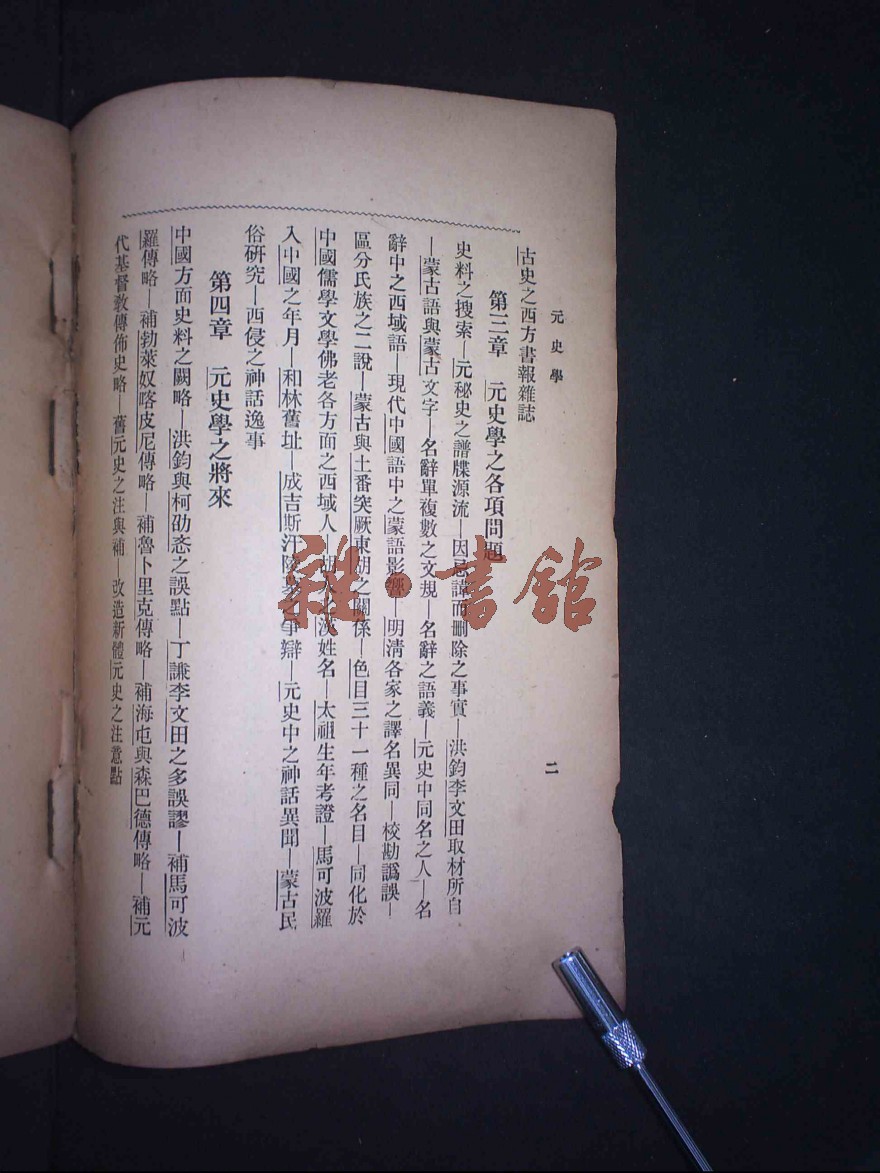 元史學
二
古史之西方書報雜誌
第三章 元史學之各項問題
史料之搜索—元秘史之譜牒源流—因忌諱而删除之事實—洪鈞李文田取材所自
—蒙古語與蒙古文字—名辭單複數之文規—名辭之語義—元史中同名之人—名
辭中之西域語—現代中國語中之蒙語影響—明清各家之譯名異同—校勘譌誤—
區分氏族之二說—蒙古與土番突厥東胡之關係—色目三十一種之名目—同化於
中國儒學文學佛老各方面之西域人—胡人之漢姓名—太祖生年考證—馬可波羅
入中國之年月—和林舊址—成吉斯汗陵墓之爭辯—元史中之神話異聞—蒙古民
俗研究—西侵之神話逸事
第四章 元史學之將來
中國方面史料之闕略—洪鈞與柯劭忞之誤點—丁謙李文田之多誤謬—補馬可波
羅傳略—補勃萊奴喀皮尼傳略—補魯卜里克傳略—補海屯與森巴德傳略—補元
代基督教傳佈史略—舊元史之注與補—改造新體元史之注意點
雜·書館